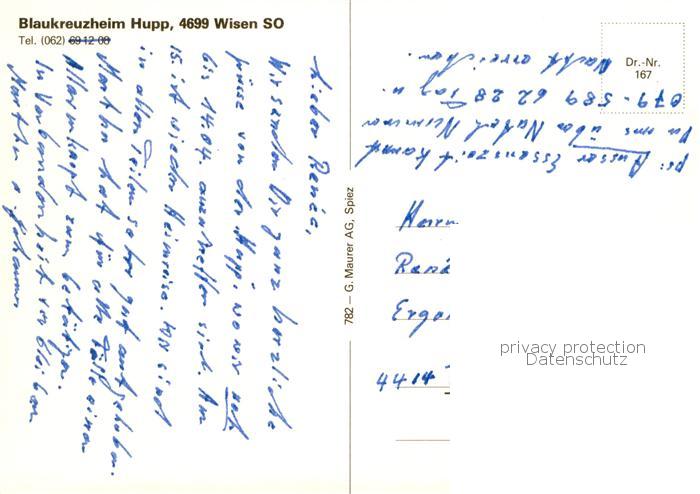 Blaukreuzheim Hupp, 4699 Wisen SO
Tel. (062) 69 12 08
Lieber René,
Wir senden Dir ganz herzliche
Grüsse von der Hupp, wo wir noch
bis 14.04. anzutreffen sind. Am
15 ist wieder Heimreise. Wir sind
in allen Teilen sehr gut aufgehoben.
Martha hat für alle Fälle einen
Alarmknopf zum betätigen.
In Verbundenheit verbleiben
Martha + Johannes
782 — G. Maurer AG, Spiez
Dr.-Nr.
167
ps: Ausser Essenszeit kannst
Du uns über Natel Nummer
079 - 589 62 28 Tag u.
Nacht erreichen.
Herrn
René
Ergo
4414
privacy protection
Datenschutz